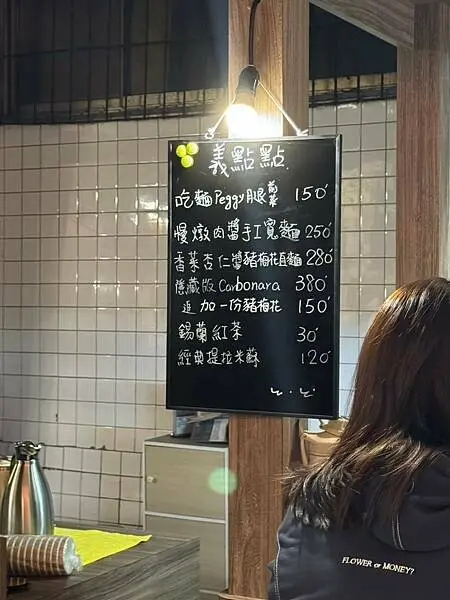 義點點
吃麵Peggy腿前菜 150
慢燉肉醬手工寬麵 250
香菜杏仁醬豬梅花直麵 280
隱藏版Carbonara 380
追加一份豬梅花 150
錫蘭紅茶 30
經典提拉米蘇 120
FLOWER or MONEY?